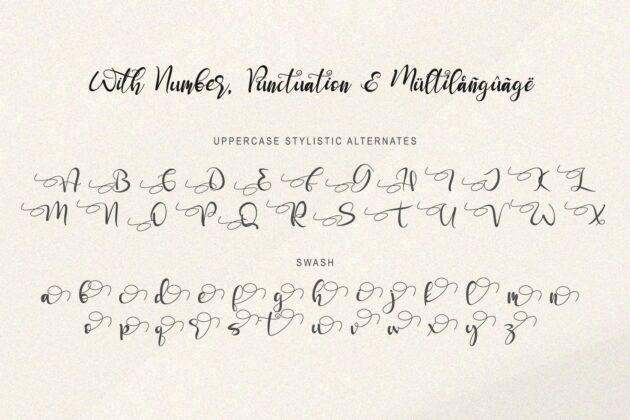 With Number, Punctuation & Mültilåñgûãgë
UPPERCASE STYLISTIC ALTERNATES
A B C D E F G H I J K L
M N O P Q R S T U V W X
SWASH
a b c d e f g h i j k l m n
o p q r s t u v w x y z